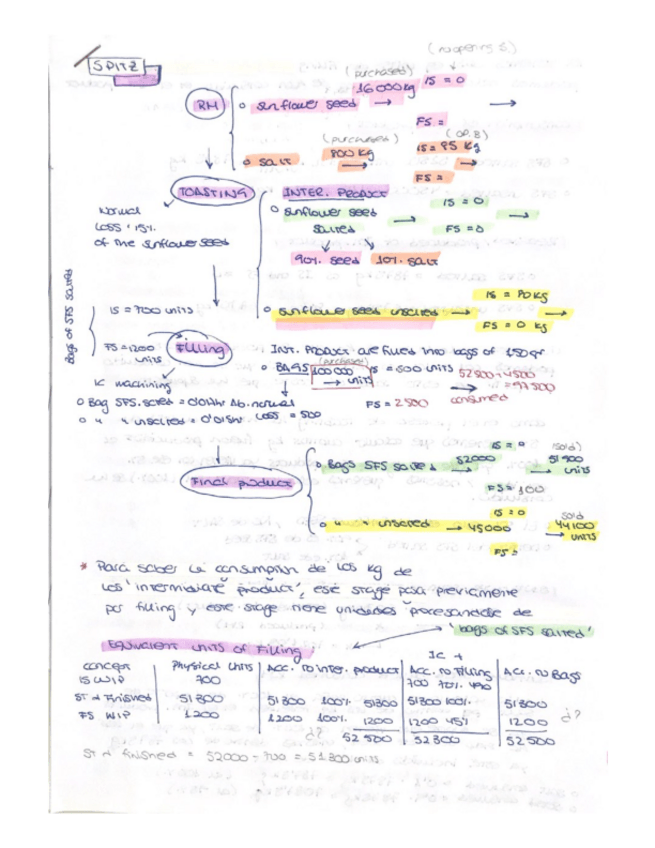 (no opening S)
SPITZ
(purchased)
RM
o sunflower seed → 16000kg IS = 0 →
FS =
(purchased) (op. B)
o SALT 800 kg → IS = 95 kg →
FS =
TOASTING
INTER. PRODUCT
Normal
Loss 15%
of the sunflower seed
o sunflower seed
salted → IS = 0 →
FS = 0
90% seed 10% salt
IS = 80 kg
o sunflower seed unsalted → →
FS = 0 kg
Bags of SFS salted
IS = 700 units
FS = 1200
units
Filling
INT. PRODUCT are filled into bags of 150gr
(purchased)
o BAGS 100000 → units IS = 500 units 52500+45000
→ = 97500
consumed
IC machining
o Bag SFS. salted = 0'01hr Ab. normal
o " " unsalted = 0'015hr Loss = 500
FS = 2500
Final product
IS = 0 (sold)
o Bags SFS salted → 52000 51900 → units
FS = 100
IS = 0 sold
o " " unsalted → 45000 44100 → units
FS =
* Para saber la consumption de los kg de
los 'intermediate product', este stage pasa previamente
por filling y este stage tiene unidades procesandose de
'bags of SFS salted'
Equivalent units of Filling
IC +
Concept Physical Units Acc. to inter. product Acc. to Filling Acc. to Bags
IS WIP 700 700 70% 490
ST & Finished 51300 51300 100% 51300 51300 100% 51300
FS WIP 1200 1200 100% 1200 1200 45% 1200 ¿?
¿? 52500 52300 52500
ST & finished = 52000 - 700 = 51300 units